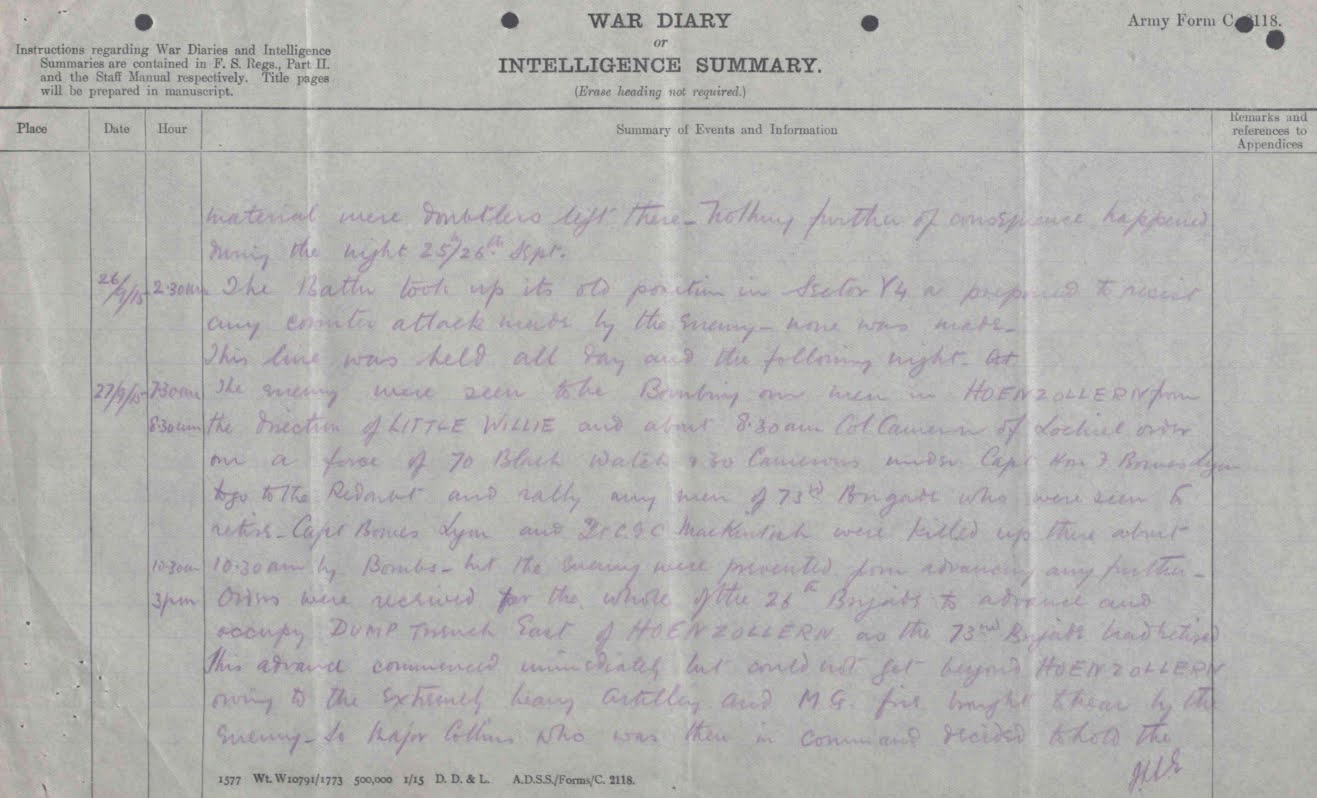 WAR DIARY
or
INTELLIGENCE SUMMARY.
(Erase heading not required.)
Army Form C. 2118.
Instructions regarding War Diaries and Intelligence
Summaries are contained in F. S. Regs., Part II.
and the Staff Manual respectively. Title pages
will be prepared in manuscript.
Place Date Hour Summary of Events and Information Remarks and references to Appendices
material were doubtless left there - Nothing further of consequence happened
during the night 25th/26th Sept.
26/9/15 2.30am The Battn took up its old position in Sector Y4 & prepared to resist
any counter attack made by the Enemy - none was made -
This line was held all day and the following night.
27/9/15 7.30am The enemy were seen to be Bombing our men in HOENZOLLERN from
8.30am the direction of LITTLE WILLIE and about 8.30am Col Cameron of Lochiel order
on a force of 70 Black Watch & 30 Camerons under Capt Hon F Bowes Lyon
to go to the Redoubt and rally any men of 73rd Brigade who were seen to
retire - Capt Bowes Lyon and Lt MacKintosh were killed up there about
10.30am 10.30am by Bombs - but the Enemy were prevented from advancing any further -
3pm Orders were received for the whole of the 26th Brigade to advance and
occupy DUMP Trench East of HOENZOLLERN as the 73rd Brigade had retired
This advance commenced immediately but could not get beyond HOENZOLLERN
owing to the Extremely heavy Artillery and M.G. fire brought to bear by the
Enemy - So Major Collins who was then in command decided to hold the
1577 Wt. W10791/1773 500,000 1/15 D. D. & L. A.D.S.S./Forms/C. 2118.